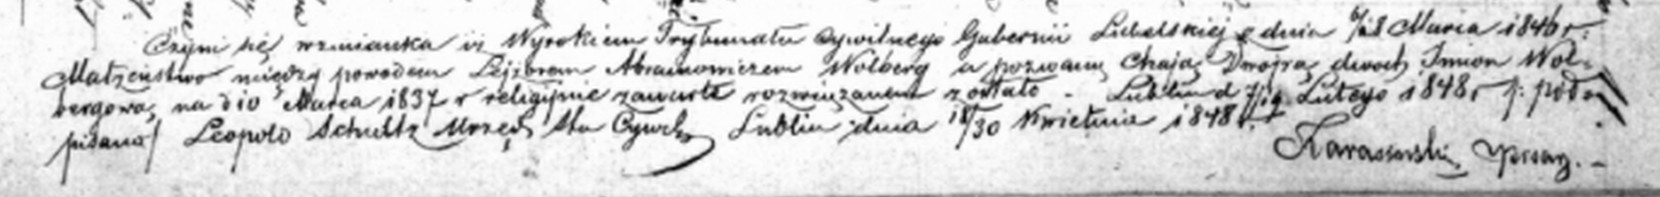 Czyni się wzmianka iż Wyrokiem Trybunału Cywilnego Gubernii Lubelskiej z dnia 6/18 Marca 1846 r.
Małżeństwo między powodem Lejzorem Abramowiczem Wolberg a pozwaną Chają Dwojrą dwoch Imion Wol-
bergową, na d 10 Marca 1837 r religijnie zawarte rozwiązanem zostało - Lublin d 7/19 Lutego 1848 r p: pod-
pisano/ Leopold Schultz Urzęd Sta Cywil Lublin dnia 18/30 Kwietnia 1848 r.